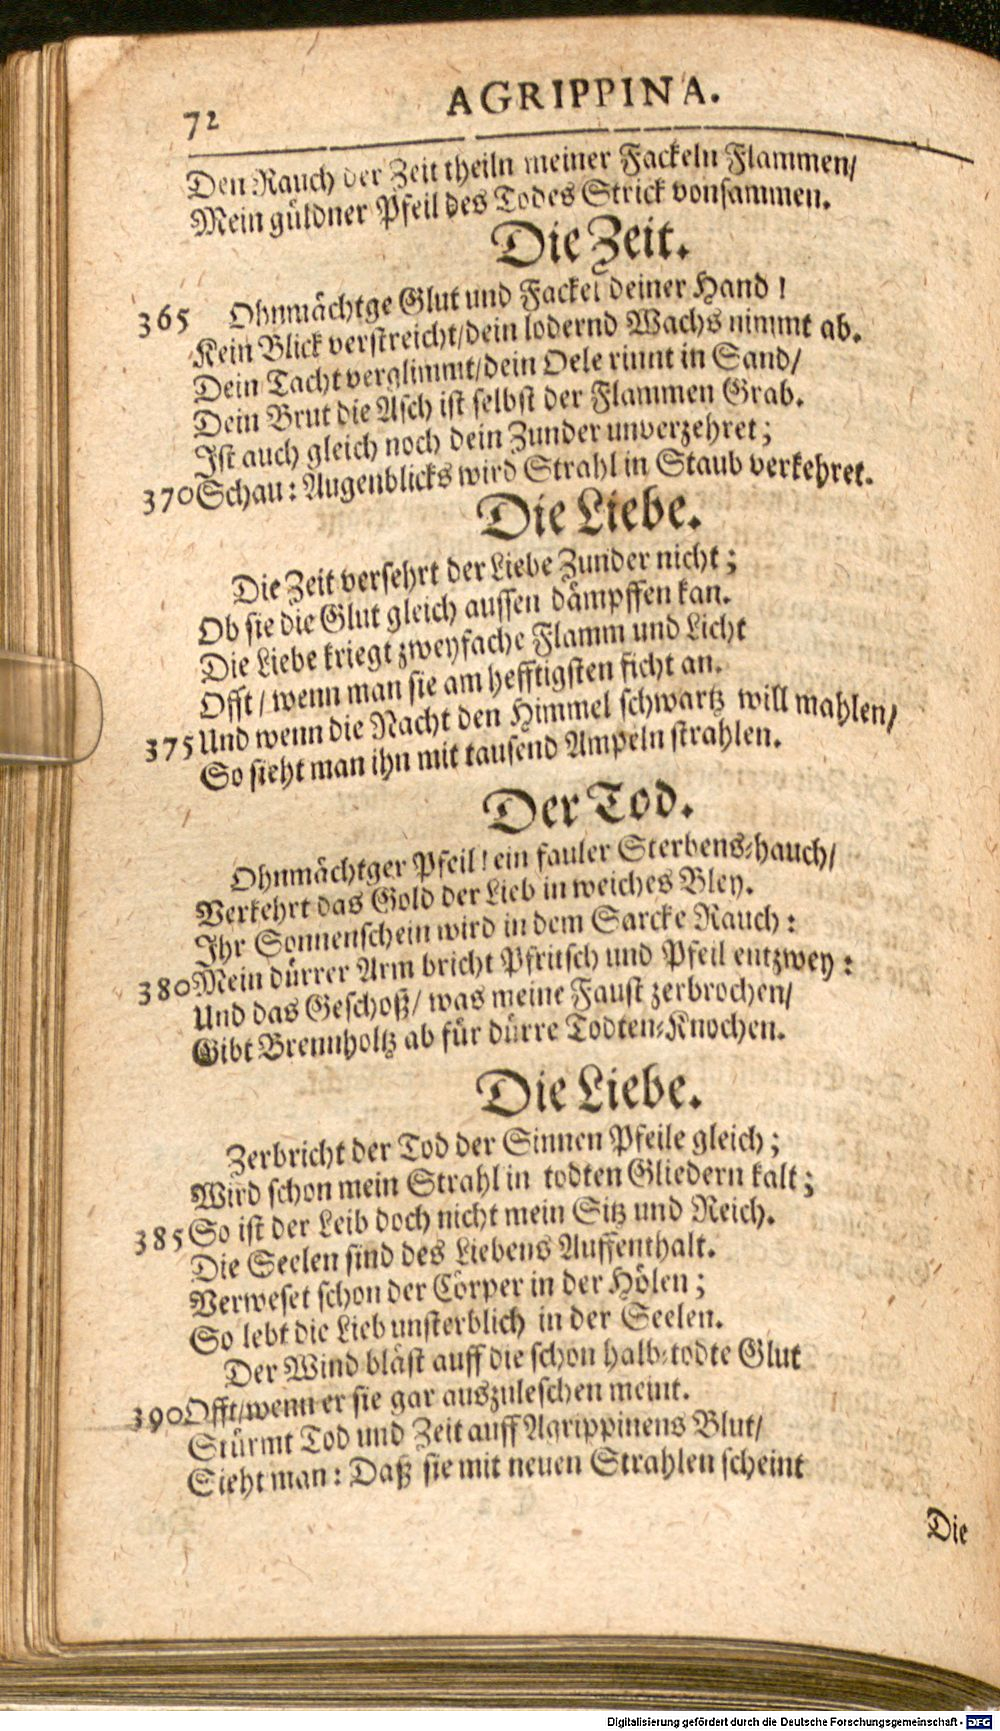 72
AGRIPPINA.
Den Rauch der Zeit theiln meiner Fackeln Flammen/
Mein güldner Pfeil des Todes Strick vonsammen.
Die Zeit.
365 Ohnmächtge Glut und Fackel deiner Hand!
Kein Blick verstreicht/dein lodernd Wachs nimmt ab.
Dein Tacht verglimmt/dein Oele rinnt in Sand/
Dein Brut die Asch ist selbst der Flammen Grab.
Ist auch gleich noch dein Zunder unverzehret;
370 Schau: Augenblicks wird Strahl in Staub verkehret.
Die Liebe.
Die Zeit versehrt der Liebe Zunder nicht;
Ob sie die Glut gleich aussen dämpffen kan.
Die Liebe kriegt zweyfache Flamm und Licht
Offt/ wenn man sie am hefftigsten ficht an.
375 Und wenn die Nacht den Himmel schwartz will mahlen/
So sieht man ihn mit tausend Ampeln strahlen.
Der Tod.
Ohnmächtger Pfeil! ein fauler Sterbens-hauch/
Verkehrt das Gold der Lieb in weiches Bley.
Ihr Sonnenschein wird in dem Sarcke Rauch:
380 Mein dürrer Arm bricht Pfritsch und Pfeil entzwey:
Und das Geschoß/ was meine Faust zerbrochen/
Gibt Brennholtz ab für dürre Todten-Knochen.
Die Liebe.
Zerbricht der Tod der Sinnen Pfeile gleich;
Wird schon mein Strahl in todten Gliedern kalt;
385 So ist der Leib doch nicht mein Sitz und Reich.
Die Seelen sind des Liebens Auffenthalt.
Verweset schon der Cörper in der Hölen;
So lebt die Lieb unsterblich in der Seelen.
Der Wind bläst auff die schon halb-todte Glut
390 Offt/wenn er sie gar auszuleschen meint.
Stürmt Tod und Zeit auff Agrippinens Blut/
Sieht man: Daß sie mit neuen Strahlen scheint
Die
Digitalisierung gefördert durch die Deutsche Forschungsgemeinschaft - DFG